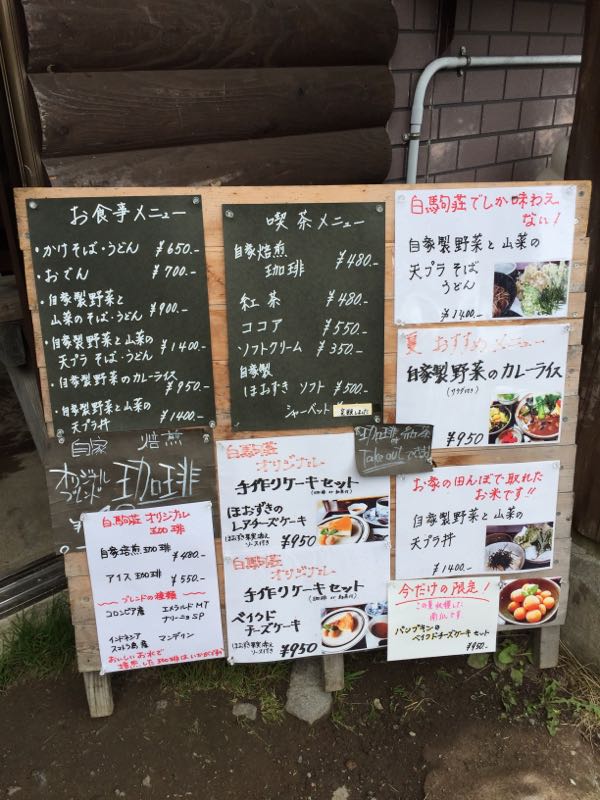 お食事メニュー
・かけそば・うどん ¥650.-
・おでん ¥700.-
・自家製野菜と
山菜のそば・うどん ¥900.-
・自家製野菜と山菜の
天プラそば・うどん ¥1400.-
・自家製野菜のカレーライス
¥950.-
・自家製野菜と山菜の
天プラ丼 ¥1400.-
喫茶メニュー
自家焙煎
珈琲 ¥480.-
紅茶 ¥480.-
ココア ¥550.-
ソフトクリーム ¥350.-
自家製
ほおずき ソフト ¥500.-
シャーベット
白駒荘でしか味わえ
ない!
自家製野菜と山菜の
天プラそば
うどん
¥1400.-
夏 おすすめ メニュー
自家製野菜のカレーライス
(サラダ付き)
¥950
自家 焙煎
オリジナル
ブレンド 珈琲
白駒荘 オリジナル
珈琲
自家焙煎珈琲 ¥480.-
アイス珈琲 ¥550.-
ブレンドの種類
コロンビア産 エメラルドMT
ナリーニョSP
インドネシア
スマトラ島産 マンデリン
おいしいお水で
白駒荘
オリジナル
手作りケーキセット
ほおずきの
レアチーズケーキ
ソース付き ¥950
珈琲 紅茶
Take out できます
白駒荘
オリジナル
手作りケーキセット
ベイクド
チーズケーキ
ソース付き ¥950
お家の田んぼで取れた
お米です!!
自家製野菜と山菜の
天プラ丼
¥1400.-
今だけの限定!
この夏収穫した
南瓜です
パンプキンの
ベイクドチーズケーキセット
¥950.-